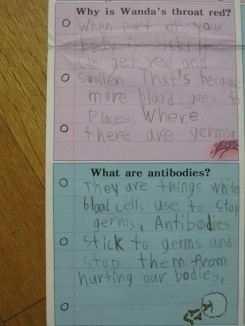 Why is Wanda's throat red?
When part of your
body is sick it
can get red and
swollen. That's because
more blood goes to
places where
there are germs.
What are antibodies?
They are things white
blood cells use to stop
germs. Antibodies
stick to germs and
stop them from
hurting our bodies.